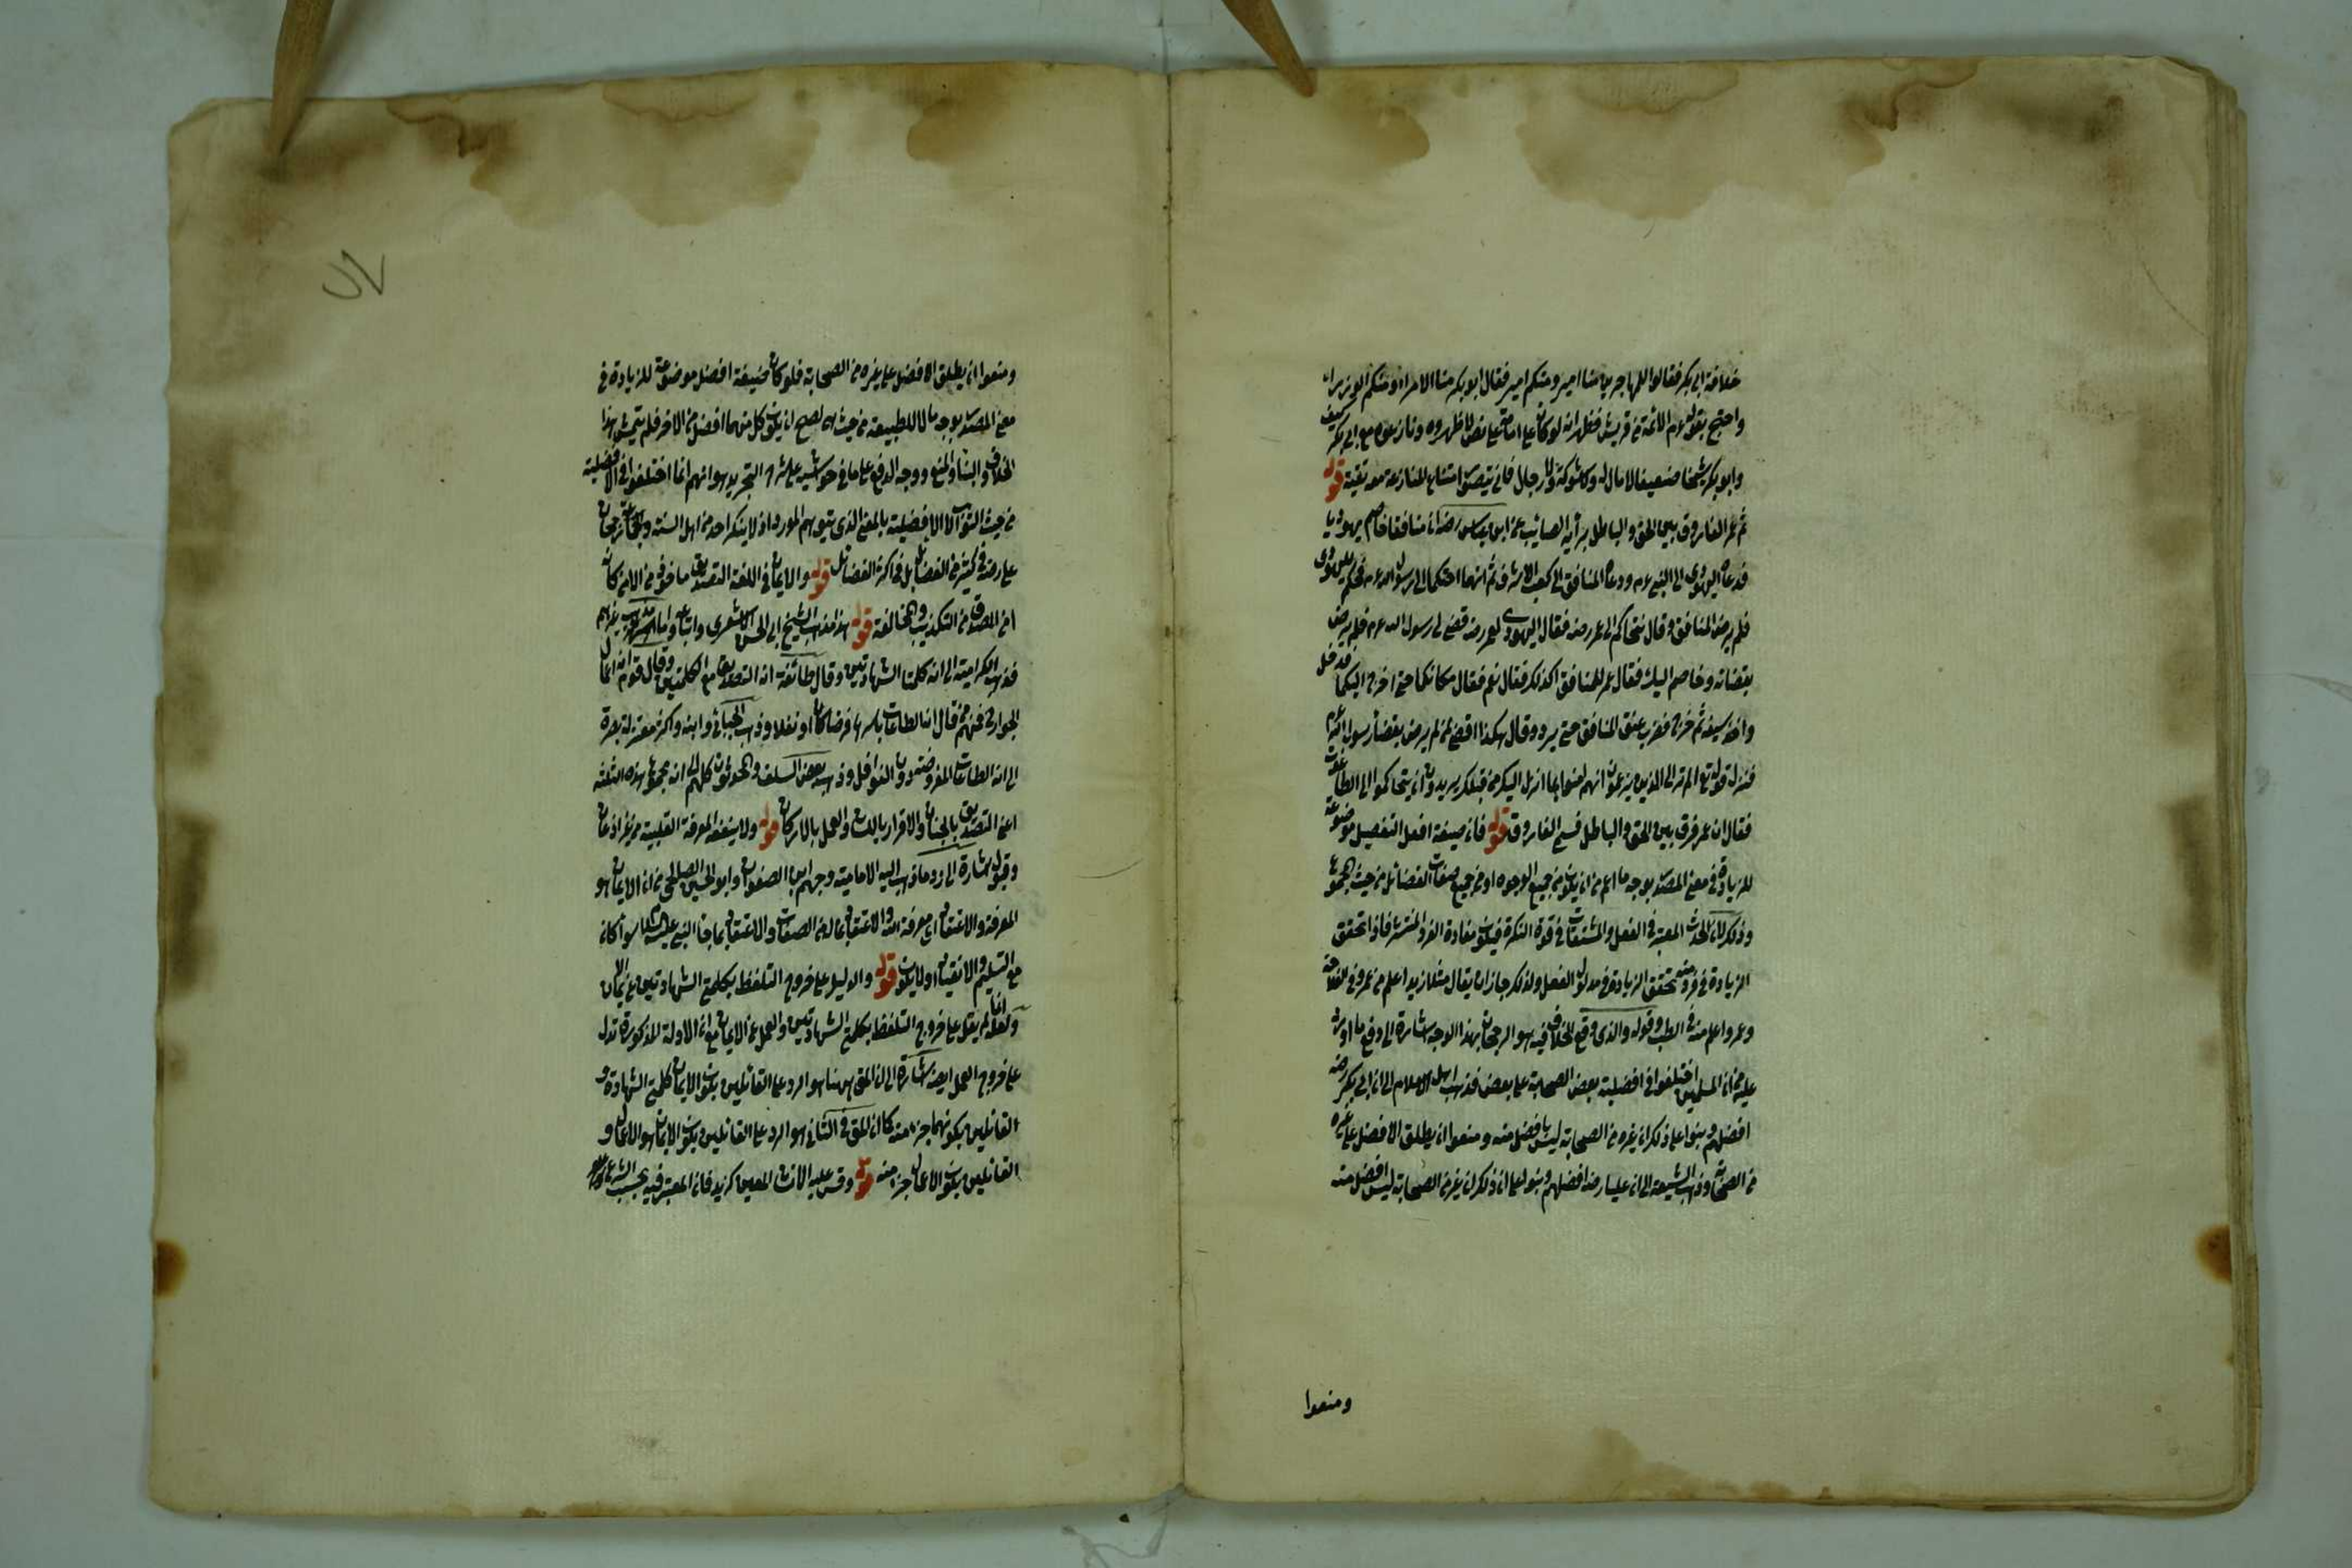 خلافة ابى بكر فقالوا للمهاجرين منا امير ومنكم امير فقال ابو بكر منا الامراء ومنكم الوزراء
واحتج بقوله عم الائمة من قريش فظهر انه لو كان على امامة على نص لاظهروه ونازعوه مع ابى بكر كيف
وابو بكر شيخا ضعيفا لا مال له ولا شوكة ولا رجال فانى يتصور امتناع المنازعة معه تقية قوله
ثم عمر الفاروق بين الحق والباطل برأيه الصائب عن ابن عباس رضه ان منافقا خاصم يهوديا
فدعاه اليهودى الى النبى عم ودعاه المنافق الى كعب الاشرف ثم انهما احتكما الى رسول الله عم فحكم لليهودى
فلم يرض المنافق وقال نتحاكم الى عمر رضه فقال اليهودى لعمر رضه قضى لى رسول الله عم فلم يرض
بقضائه وخاصم اليك فقال عمر للمنافق اكذلك فقال نعم فقال مكانكما حتى اخرج اليكما فدخل
واخذ سيفه ثم خرج فضرب عنق المنافق حتى برد وقال هكذا اقضى لمن لم يرض بقضاء رسول الله عم
فنزلت قوله تع الم تر الى الذين يزعمون انهم امنوا بما انزل اليك من قبلك يريدون ان يتحاكموا الى الطاغوت
فقال ان عمر فرق بين الحق والباطل فسمى الفاروق قوله فان صيغة افعل التفضيل موضوعة
للزيادة فى معنى المصدر بوجه ما اعم من ان يكون من جميع الوجوه او من جميع صفات الفضائل من حيث المجموع
وذلك لان الحدث المعتبر فى الفعل والمشتقات فى قوة النكرة فيكون مفادة الفرد المنتشر فاذا تحقق
الزيادة فى فرد منه تحقق الزيادة فى مدلول الفعل ولذلك جاز ان يقال مثلا زيد اعلم من عمرو فى الفلاحة
وعمرو اعلم منه فى الطب وقوله والذى وقع الخلاف فيه هو الرجحان بهذا الوجه اشارة الى دفع ما اورد
عليه من ان المسلمين اختلفوا فى افضلية بعض الصحابة على بعض فذهب اهل الاسلام الى ان ابى بكر رضه
افضل وبنوا على ذلك ان غيره من الصحابة ليس بافضل منه ومنعوا ان يطلق الافضل على غيره
من الصحابة وذهب الشيعة الى ان عليا رضه افضلهم وبنوا على ان ذلك ان غيره من الصحابة ليس افضل منه
ومنعوا
ومنعوا ان يطلق الافضل على غيره من الصحابة فلو كان صيغة افضل موضوعة للزيادة فى
معنى المصدر بوجه ما لا للطبيعة من حيث هى لصح ان يكون كل منهما افضل من الاخر فلم يتمش هذا
الخلاف والبناء والمنع ووجه الدفع على ما فى حواشيه على شرح التجريد هو انهم انما اختلفوا فى الافضلية
من حيث الثواب لا الافضلية بالمعنى الذى يتوهم المورد اذ لا ينكر احد من اهل السنة والجماعة رجحان
على رضه فى كثير من الفضائل بل فى اكثر الفضائل قوله والايمان فى اللغة التصديق مأخوذ من الامن كان
امن المصدق من التكذيب والمخالفة قوله هذا مذهب الشيخ ابى الحسن الاشعرى واتباعه واما مذهب غيرهم
فذهب الكرامية الى انه كلمتا الشهادتين وقال طائفة انه التصديق مع الكلمتين وقال قوم انه اعمال
الجوارح فمنهم من قال انه الطاعات باسرها فرضا كان او نفلا وذهب الجبائى وابنه واكثر معتزلة بصرة
الى انه الطاعات المفروضة دون النوافل وذهب بعض السلف والمحدثون كلهم الى انه مجموع هذه الثلثة
اعنى التصديق بالجنان والاقرار باللسان والعمل بالاركان قوله ولا يشفعه المعرفة القلبية من غير اذعان
وقبول اشارة الى رد ما ذهب اليه الامامية وجهم ابن الصفوان وابو الحسين الصالحى من ان الايمان هو
المعرفة والاعتقاد اى معرفة الله والاعتقاد بماله من الصفات والاعتقاد بما جاء النبى عليه السلام سواء كان
مع التسليم والانقياد اولا يكون قوله والدليل على خروج التلفظ بكلمتى الشهادتين عن الايمان
ولعله انما لم يقل على خروج التلفظ بكلمتى الشهادتين والعمل عن الايمان مع ان الادلة المذكورة تدل
على خروج العمل ايضه اشارة الى ان المق ههنا هو الرد على القائلين بكون الايمان كلمتى الشهادة و
القائلين بكونهما جزء منه كما ان المق فى الثانى هو الرد على القائلين بكون الايمان هو الاعمال و
القائلين بكون الاعمال جزء منه قوله وقس عليه الانسان المعين كزيد فان المعتبر فيه بحسب الشرع